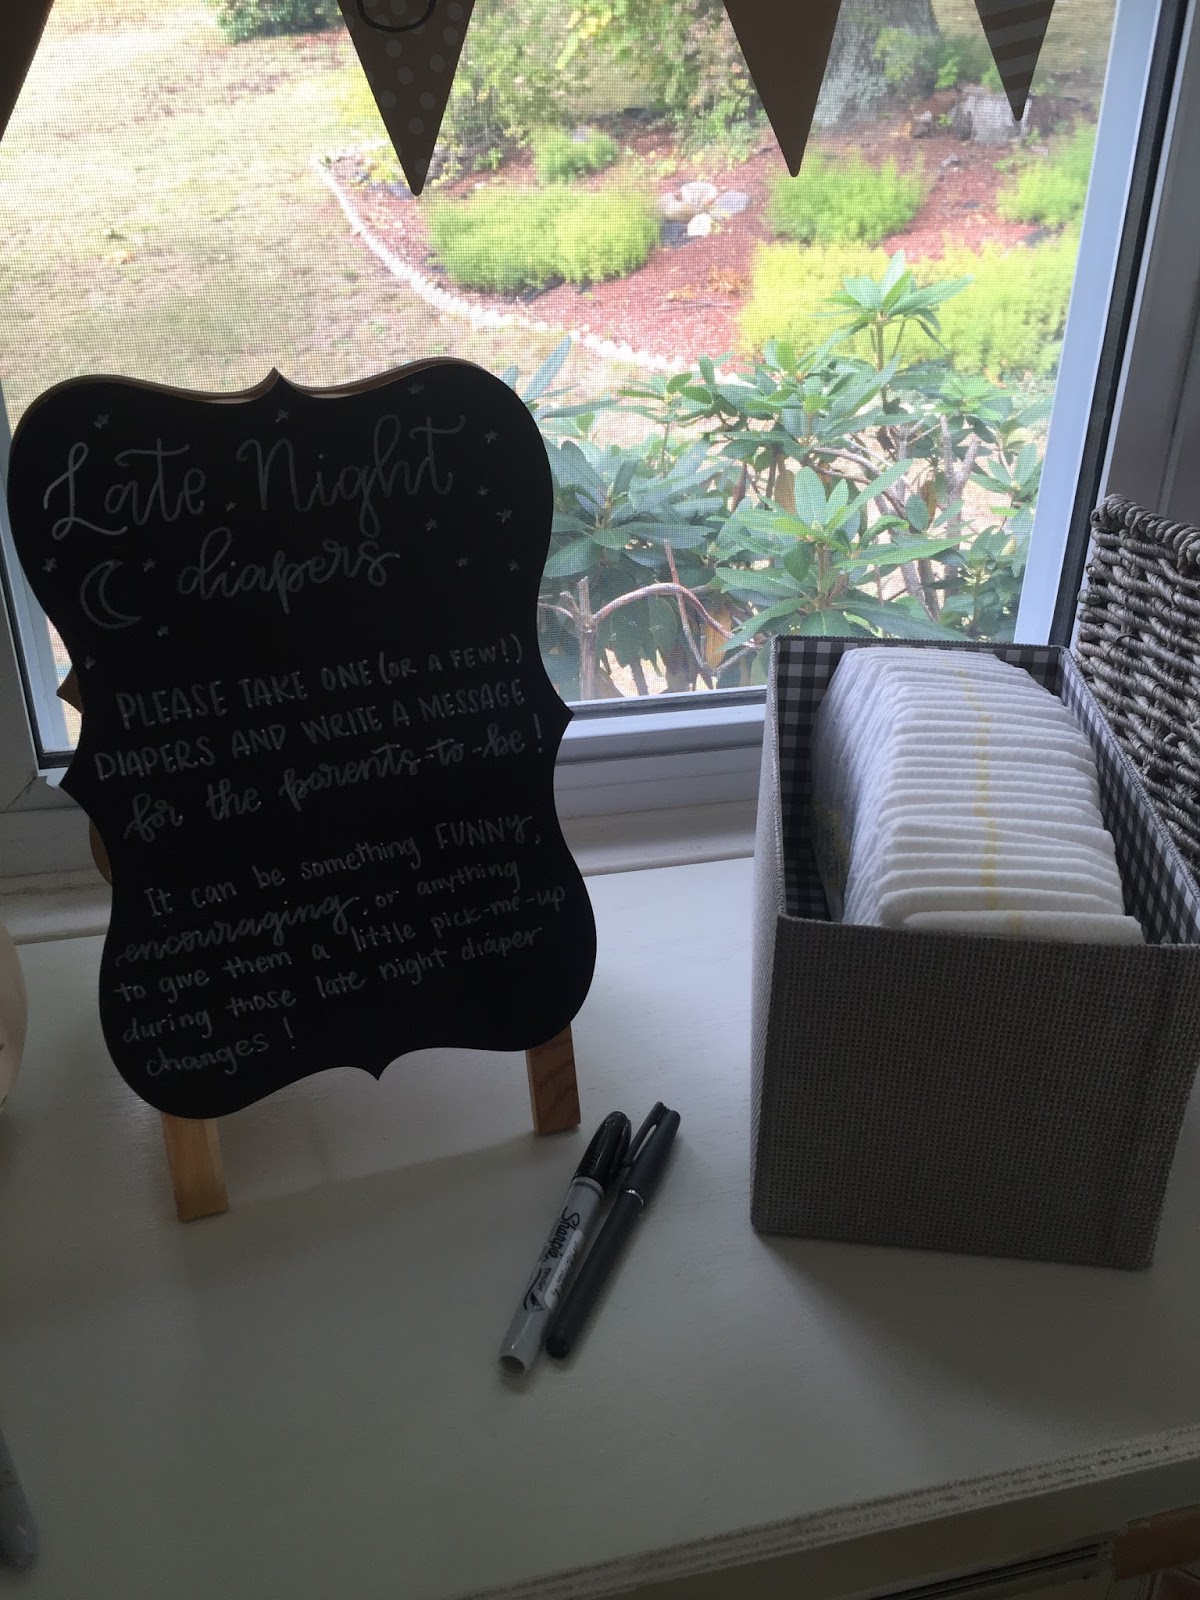 Late Night
diapers
PLEASE TAKE ONE (OR A FEW!)
DIAPERS AND WRITE A MESSAGE
for the parents-to-be!
It can be something FUNNY,
encouraging, or anything
to give them a little pick-me-up
during those late night diaper
changes!
Sharpie